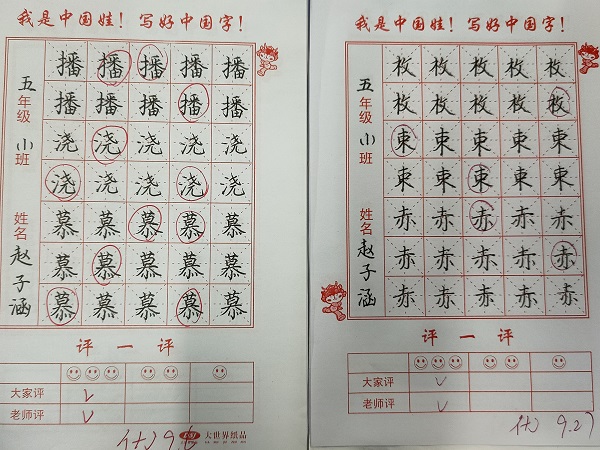 我是中国娃！写好中国字！
五年级 小班 姓名 赵子涵
播播播播播
播播播播播
浇浇浇浇浇
浇浇浇浇浇
慕慕慕慕慕
慕慕慕慕慕
慕慕慕慕慕
评一评
大家评
老师评
大世界纸品
我是中国娃！写好中国字！
五年级 小班 姓名 赵子涵
枚枚枚枚枚
枚枚枚枚枚
束束束束束
束束束束束
赤赤赤赤赤
赤赤赤赤赤
赤赤赤赤赤
评一评
大家评
老师评
9.27